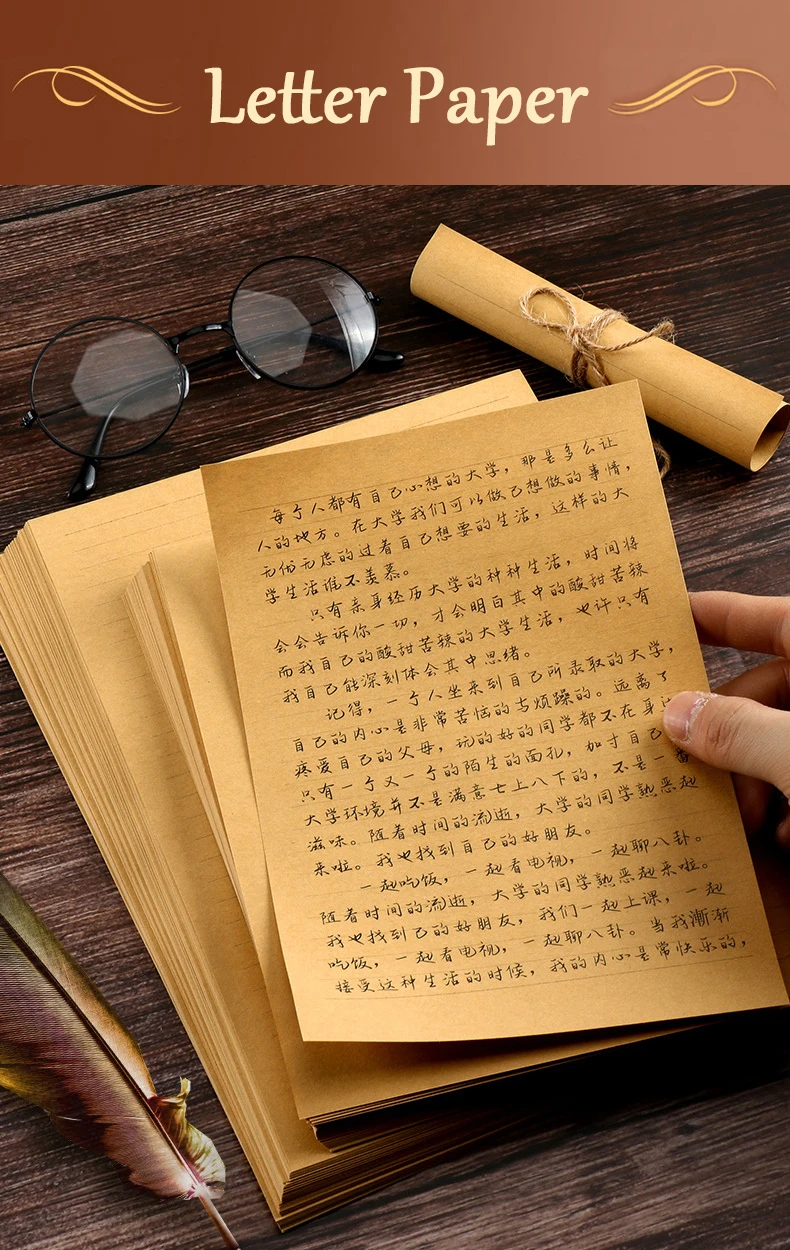 Letter Paper
每个人都有自己心想的大学，那是多么让
人的地方。在大学我们可以做己想做的事情，
无俗无虑的过着自己想要的生活，这样的大
学生活谁不羡慕。
只有亲身经历大学的种种生活，时间将
会会告诉你一切，才会明白其中的酸甜苦辣
而我自己的酸甜苦辣的大学生活，也许只有
我自己能深刻体会其中思绪。
记得，一个人坐来到自己所录取的大学，
自己的内心是非常苦恼的与烦躁的。远离了
疼爱自己的父母，玩的好的同学都不在身
只有一个又一个的陌生的面孔，加寸自己
大学环境并不是满意七上八下的，不是一番
滋味。随着时间的流逝，大学的同学熟悉起
来啦。我也找到自己的好朋友。
一起吃饭，一起看电视，一起聊八卦。
随着时间的流逝，大学的同学熟悉起来啦。
我也找到己的好朋友，我们一起上课，一起
吃饭，一起看电视，一起聊八卦。当我渐渐
接受这种生活的时候，我的内心是常快乐的，